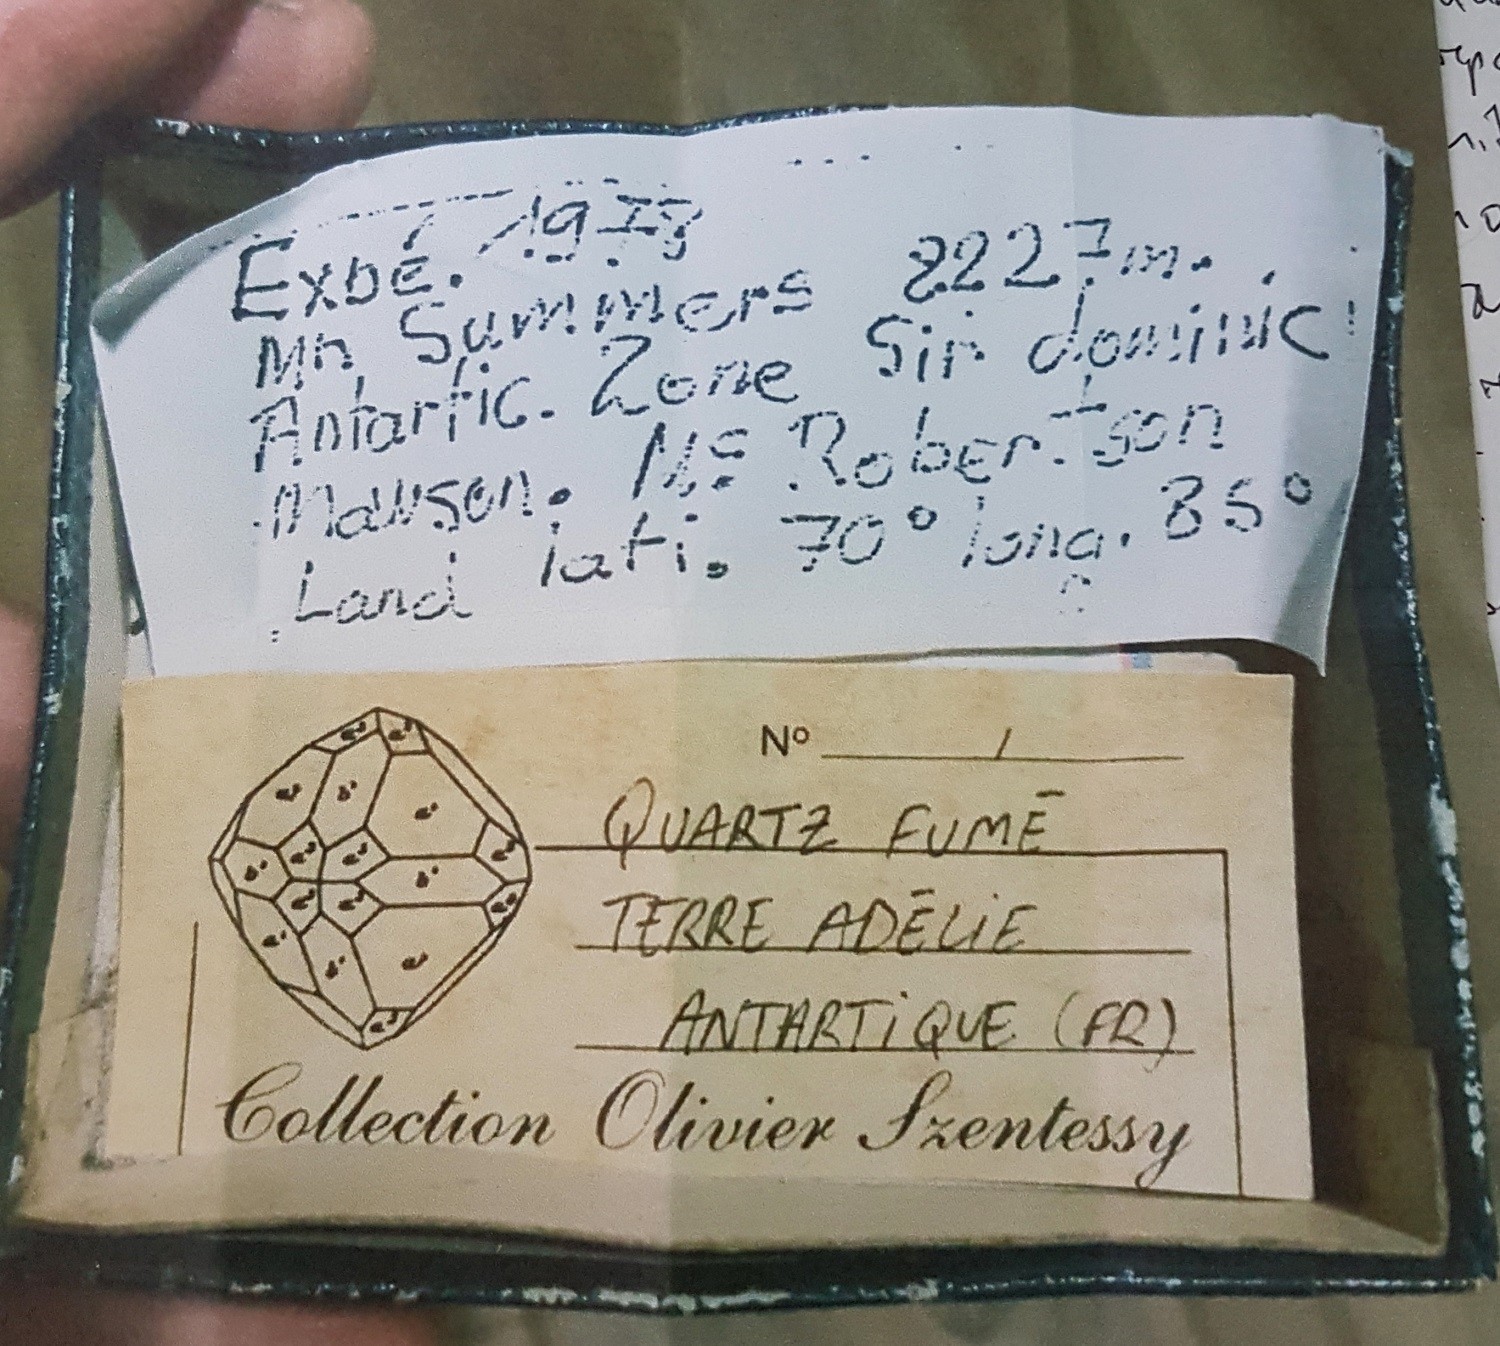 Expé. 1978
Mn Summers 2227m.
Antartic. Zone Sir dominic
Mawson. Mc Robertson
Land lati. 70° long. 85°
N° 1
QUARTZ FUMÉ
TERRE ADÉLIE
ANTARTIQUE (FR)
Collection Olivier Szentessy